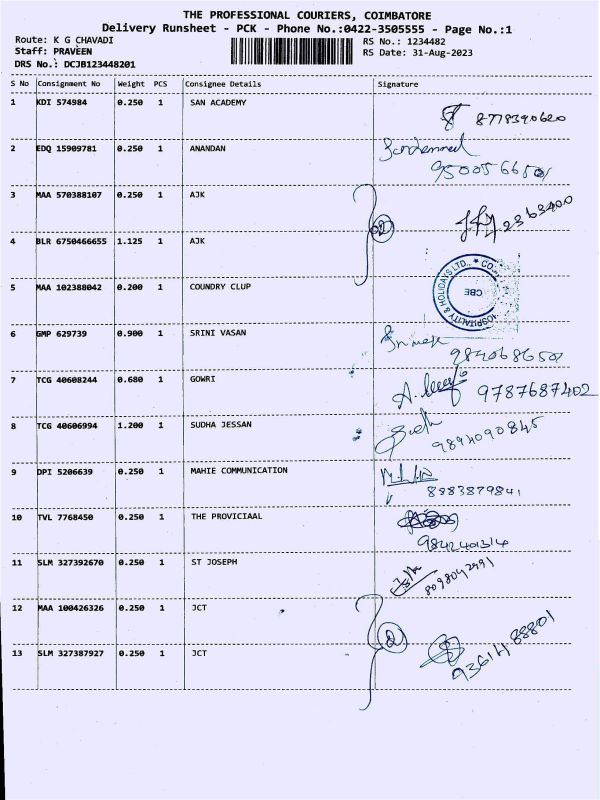 THE PROFESSIONAL COURIERS, COIMBATORE
Delivery Runsheet - PCK - Phone No.:0422-3505555 - Page No.:1
Route: K G CHAVADI
Staff: PRAVEEN
DRS No.: DCJB123448201
RS No.: 1234482
RS Date: 31-Aug-2023
S No Consignment No Weight PCS Consignee Details Signature
1 KDI 574984 0.250 1 SAN ACADEMY 8778390620
2 EDQ 15909781 0.250 1 ANANDAN
3 MAA 570388107 0.250 1 AJK 2363400
4 BLR 6750466655 1.125 1 AJK
5 MAA 102388042 0.200 1 COUNDRY CLUP
HOSPITALITY & HOLIDAYS LTD., ★ CO
CBE
6 GMP 629739 0.900 1 SRINI VASAN 9840686501
7 TCG 40608244 0.680 1 GOWRI 9787687402
8 TCG 40606994 1.200 1 SUDHA JESSAN 9894090845
9 DPI 5206639 0.250 1 MAHIE COMMUNICATION 8883879841
10 TVL 7768450 0.250 1 THE PROVICIAAL 9842401314
11 SLM 327392670 0.250 1 ST JOSEPH 8098042991
12 MAA 100426326 0.250 1 JCT
2
13 SLM 327387927 0.250 1 JCT